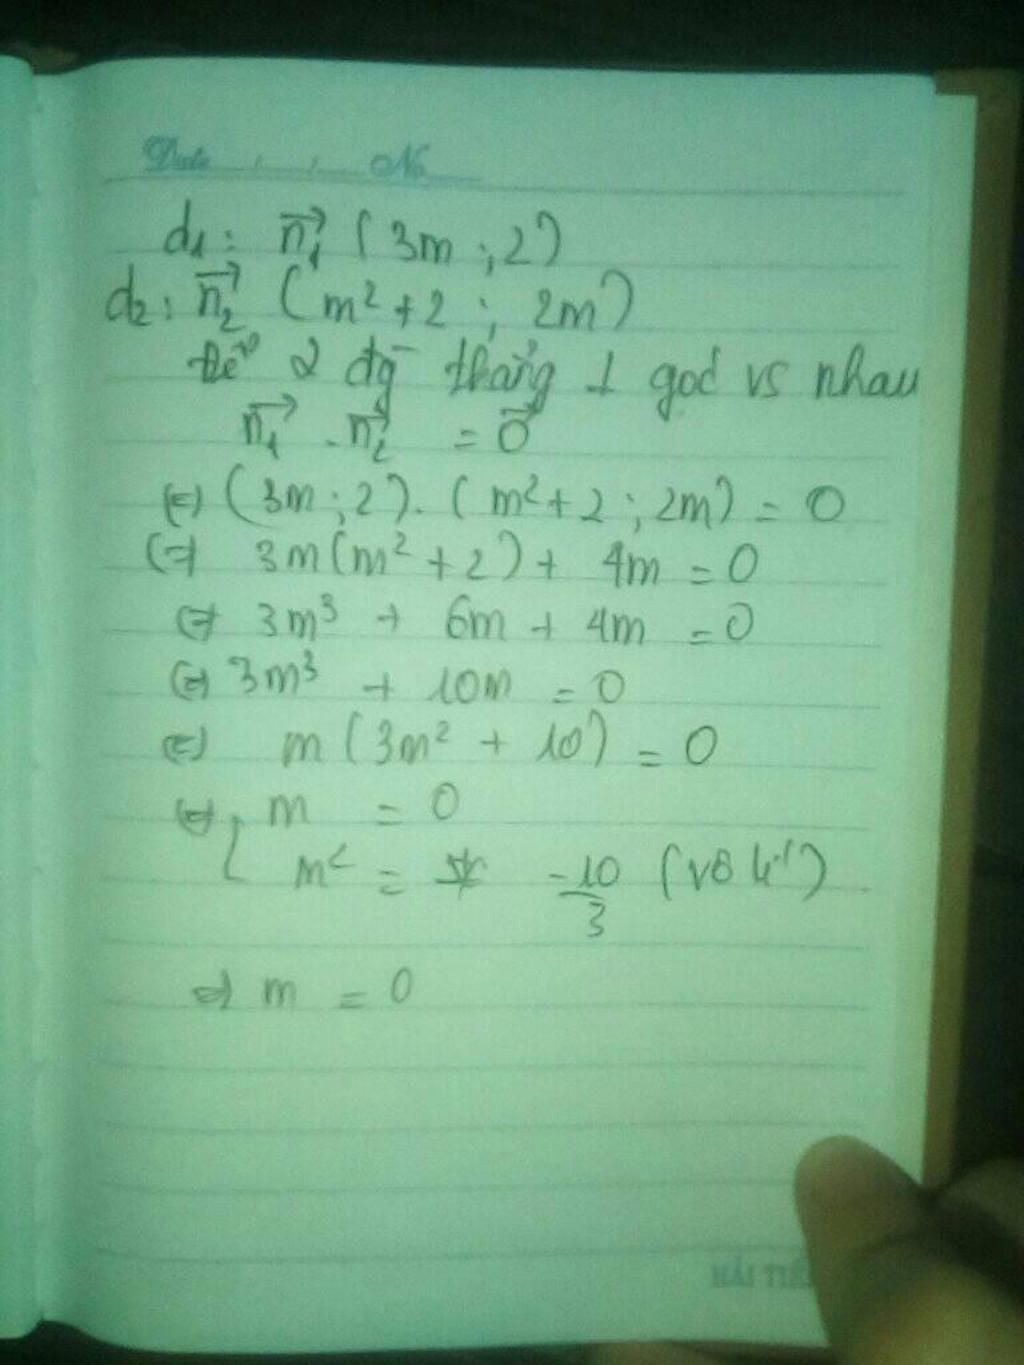 Date / / No
d1: n1 (3m ; 2)
d2: n2 (m²+2 ; 2m)
Để 2 đg thẳng ⊥ góc vs nhau
n1 . n2 = 0
(=) (3m ; 2) . (m²+2 ; 2m) = 0
(=) 3m(m²+2) + 4m = 0
(=) 3m³ + 6m + 4m = 0
(=) 3m³ + 10m = 0
(=) m(3m² + 10) = 0
(=) [ m = 0
m² = -10/3 (vô lí)
=) m = 0
HẢI TIẾ